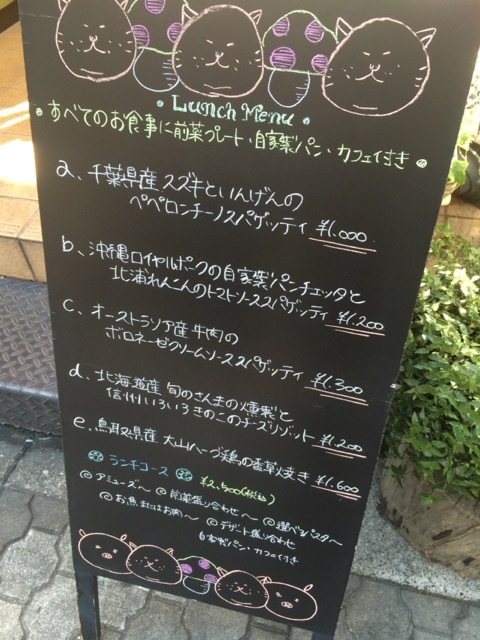 Lunch Menu
・すべてのお食事に前菜プレート・自家製パン・カフェ付き・
a、千葉県産スズキといんげんの
ペペロンチーノスパゲッティ ¥1.000
b、沖縄ロイヤルポークの自家製パンチェッタと
北浦れんこんのトマトソーススパゲッティ ¥1.200
c、オーストラリア産牛肉の
ボロネーゼクリームソーススパゲッティ ¥1.300
d、北海道産 旬のさんまの燻製と
信州いろいろきのこのチーズリゾット ¥1.200
e、鳥取県産 大山ハーブ鶏の香草焼き ¥1.600
ランチコース ¥2,500(税込)
◎アミューズ〜 ◎前菜盛り合わせ〜 ◎選べるパスタ〜
◎お魚またはお肉〜 ◎デザート盛り合わせ
自家製パン・カフェ付き